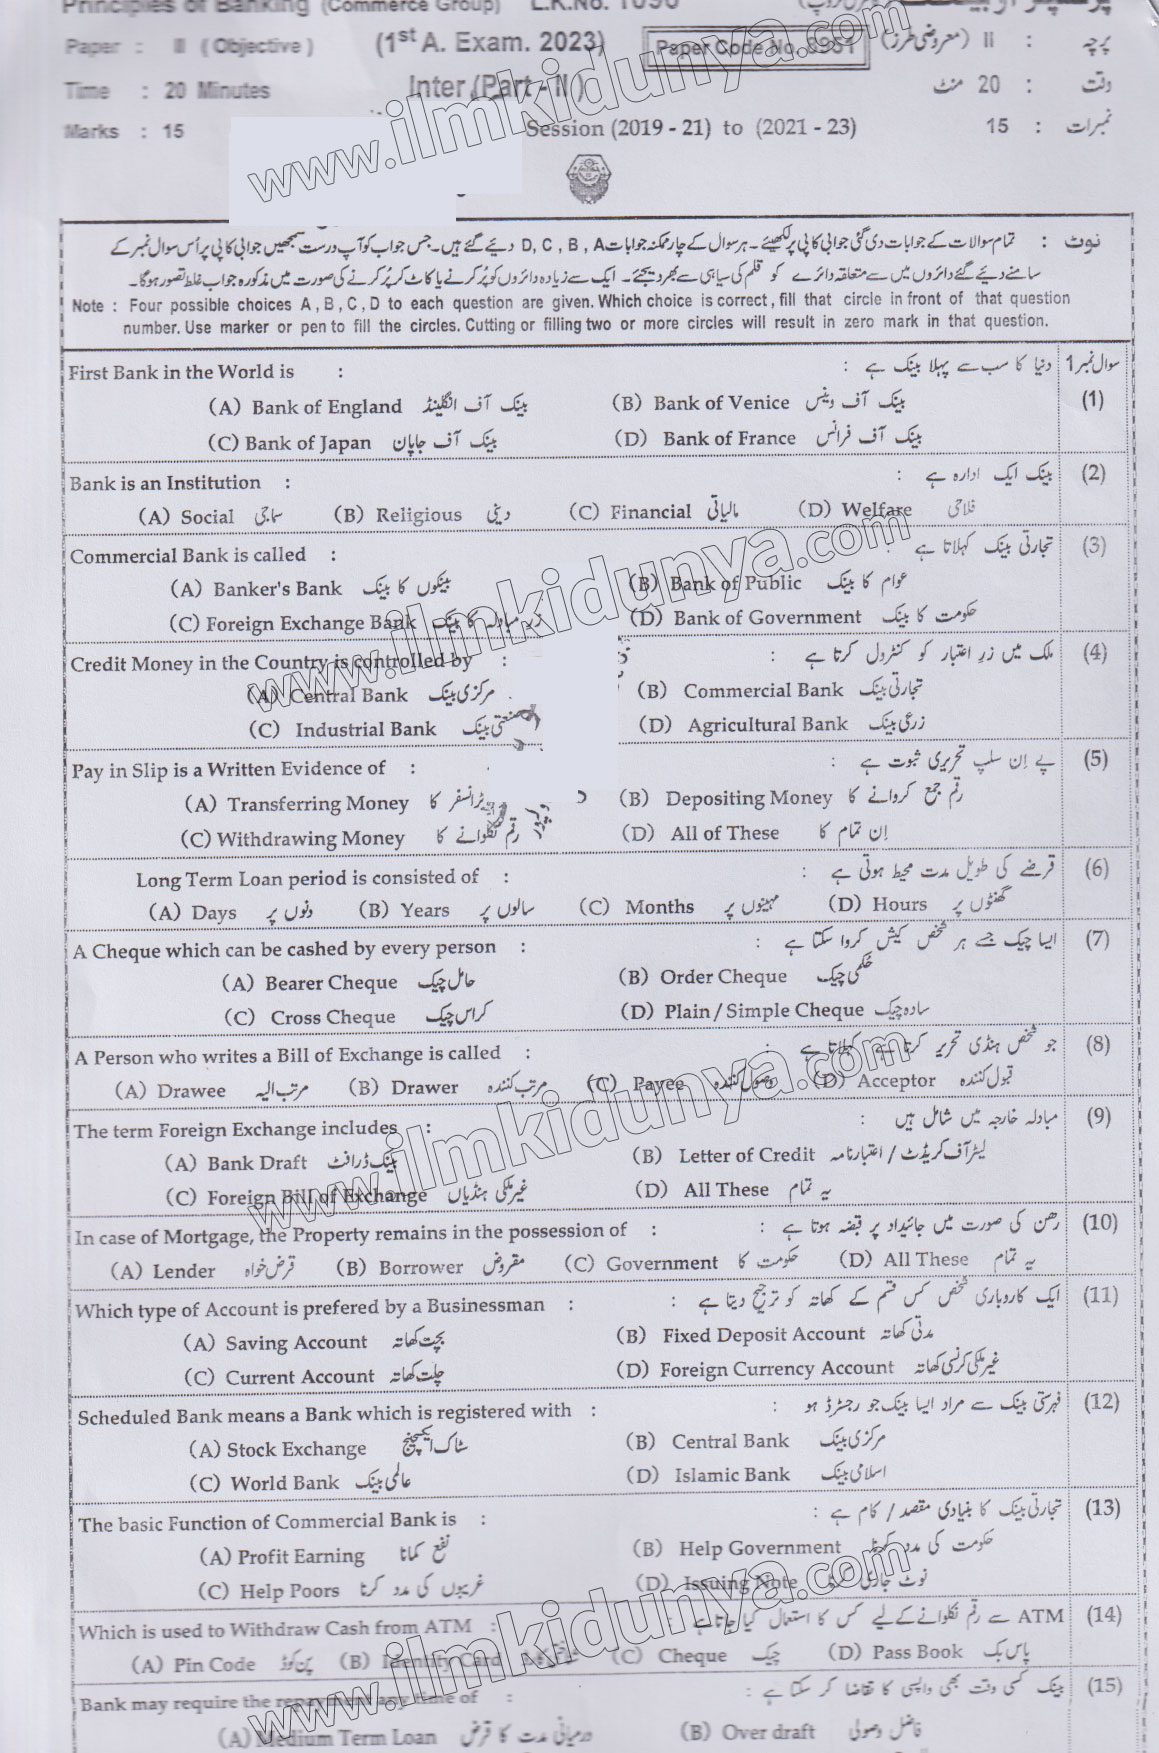 Principles of Banking (Commerce Group) L.K.No. 1090
Paper : II (Objective) (1st A. Exam. 2023) Paper Code No. 8981 پرچہ : II (معروضی طرز)
Time : 20 Minutes Inter (Part - II) وقت : 20 منٹ
Marks : 15 Session (2019 - 21) to (2021 - 23) نمبرات : 15
نوٹ : تمام سوالات کے جوابات دی گئی جوابی کاپی پر لکھیئے۔ ہر سوال کے چار ممکنہ جوابات D, C, B, A دئیے گئے ہیں۔ جس جواب کو آپ درست سمجھیں جوابی کاپی پر اُس سوال نمبر کے
سامنے دئیے گئے دائروں میں سے متعلقہ دائرے کو قلم کی سیاہی سے بھر دیجئے۔ ایک سے زیادہ دائروں کو پُر کرنے یا کاٹ کر پُر کرنے کی صورت میں مذکورہ جواب غلط تصور ہوگا۔
Note : Four possible choices A , B , C , D to each question are given. Which choice is correct, fill that circle in front of that question
number. Use marker or pen to fill the circles. Cutting or filling two or more circles will result in zero mark in that question.
First Bank in the World is : دنیا کا سب سے پہلا بینک ہے : سوال نمبر 1
(A) Bank of England بینک آف انگلینڈ (B) Bank of Venice بینک آف وینس (1)
(C) Bank of Japan بینک آف جاپان (D) Bank of France بینک آف فرانس
Bank is an Institution : بینک ایک ادارہ ہے : (2)
(A) Social سماجی (B) Religious دینی (C) Financial مالیاتی (D) Welfare فلاحی
Commercial Bank is called : تجارتی بینک کہلاتا ہے : (3)
(A) Banker's Bank بینکوں کا بینک (B) Bank of Public عوام کا بینک
(C) Foreign Exchange Bank زرِ مبادلہ کا بینک (D) Bank of Government حکومت کا بینک
Credit Money in the Country is controlled by : ملک میں زرِ اعتبار کو کنٹرول کرتا ہے : (4)
(A) Central Bank مرکزی بینک (B) Commercial Bank تجارتی بینک
(C) Industrial Bank صنعتی بینک (D) Agricultural Bank زرعی بینک
Pay in Slip is a Written Evidence of : پے اِن سلپ تحریری ثبوت ہے : (5)
(A) Transferring Money ٹرانسفر کا (B) Depositing Money رقم جمع کروانے کا
(C) Withdrawing Money رقم نکلوانے کا (D) All of These اِن تمام کا
Long Term Loan period is consisted of : قرضے کی طویل مدت محیط ہوتی ہے : (6)
(A) Days دنوں پر (B) Years سالوں پر (C) Months مہینوں پر (D) Hours گھنٹوں پر
A Cheque which can be cashed by every person : ایسا چیک جسے ہر شخص کیش کروا سکتا ہے : (7)
(A) Bearer Cheque حامل چیک (B) Order Cheque حکمی چیک
(C) Cross Cheque کراس چیک (D) Plain / Simple Cheque سادہ چیک
A Person who writes a Bill of Exchange is called : جو شخص ہنڈی تحریر کرتا ہے کہلاتا ہے : (8)
(A) Drawee مرتب الیہ (B) Drawer مرتب کنندہ (C) Payee وصول کنندہ (D) Acceptor قبول کنندہ
The term Foreign Exchange includes : مبادلہ خارجہ میں شامل ہیں : (9)
(A) Bank Draft بینک ڈرافٹ (B) Letter of Credit لیٹر آف کریڈٹ / اعتبار نامہ
(C) Foreign Bill of Exchange غیر ملکی ہنڈیاں (D) All These یہ تمام
In case of Mortgage, the Property remains in the possession of : رھن کی صورت میں جائیداد پر قبضہ ہوتا ہے : (10)
(A) Lender قرض خواہ (B) Borrower مقروض (C) Government حکومت کا (D) All These یہ تمام
Which type of Account is prefered by a Businessman : ایک کاروباری شخص کس قسم کے کھاتہ کو ترجیح دیتا ہے : (11)
(A) Saving Account بچت کھاتہ (B) Fixed Deposit Account مدتی کھاتہ
(C) Current Account چلت کھاتہ (D) Foreign Currency Account غیر ملکی کرنسی کھاتہ
Scheduled Bank means a Bank which is registered with : فہرستی بینک سے مراد ایسا بینک جو رجسٹرڈ ہو : (12)
(A) Stock Exchange سٹاک ایکسچینج (B) Central Bank مرکزی بینک
(C) World Bank عالمی بینک (D) Islamic Bank اسلامی بینک
The basic Function of Commercial Bank is : تجارتی بینک کا بنیادی مقصد / کام ہے : (13)
(A) Profit Earning نفع کمانا (B) Help Government حکومت کی مدد کرنا
(C) Help Poors غریبوں کی مدد کرنا (D) Issuing Note نوٹ جاری کرنا
Which is used to Withdraw Cash from ATM : ATM سے رقم نکلوانے کے لیے کس کا استعمال کیا جاتا ہے : (14)
(A) Pin Code پن کوڈ (B) Identity Card شناختی کارڈ (C) Cheque چیک (D) Pass Book پاس بک
Bank may require the repayment any time of : بینک کسی وقت بھی واپسی کا تقاضا کر سکتا ہے : (15)
(A) Medium Term Loan درمیانی مدت کا قرض (B) Over draft فاضل وصولی
www.ilmkidunya.com
www.ilmkidunya.com
www.ilmkidunya.com
www.ilmkidunya.com